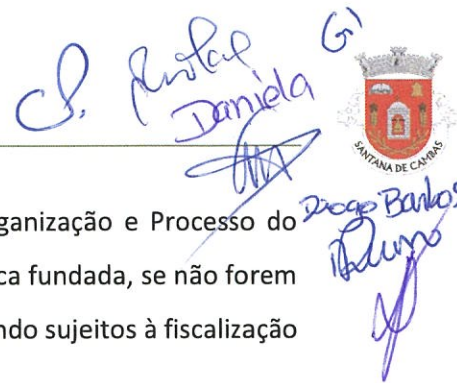 Daniela
SANTANA DE CAMBAS
ganização e Processo do
Diogo
ca fundada, se não forem
ndo sujeitos à fiscalização